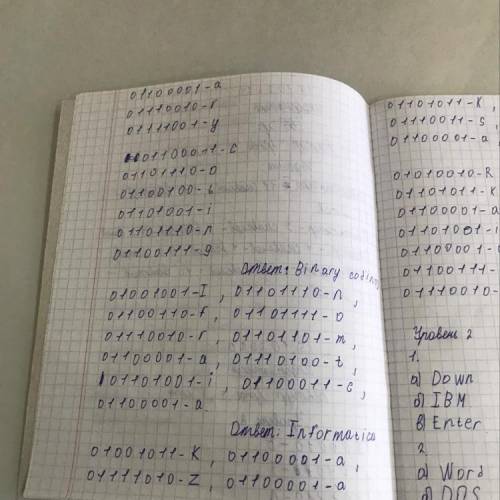 01100001-a
01110010-r
01111001-y
01100011-c
01101110-o
01100100-
01101001-i
01101110-n
01100111-g
Ответ: Binary
01001001-I, 01101110-n,
01100110-f, 01101111-o
01110010-r, 01101101-m,
01100001-a, 01110100-t,
01101001-i, 01100011-c,
01100001-a
Ответ: Informatica
01001011-K, 01100001-a,
01111010-Z, 01100001-a
01101011-K,
01110011-s
01100001-a
01010010-R
01101011-K
01100001-a
01101001-i
0110001-
01100111-
01110010-
Уровень 2
1.
а) Down
б) IBM
в) Enter
2
а) Word
б) DOS